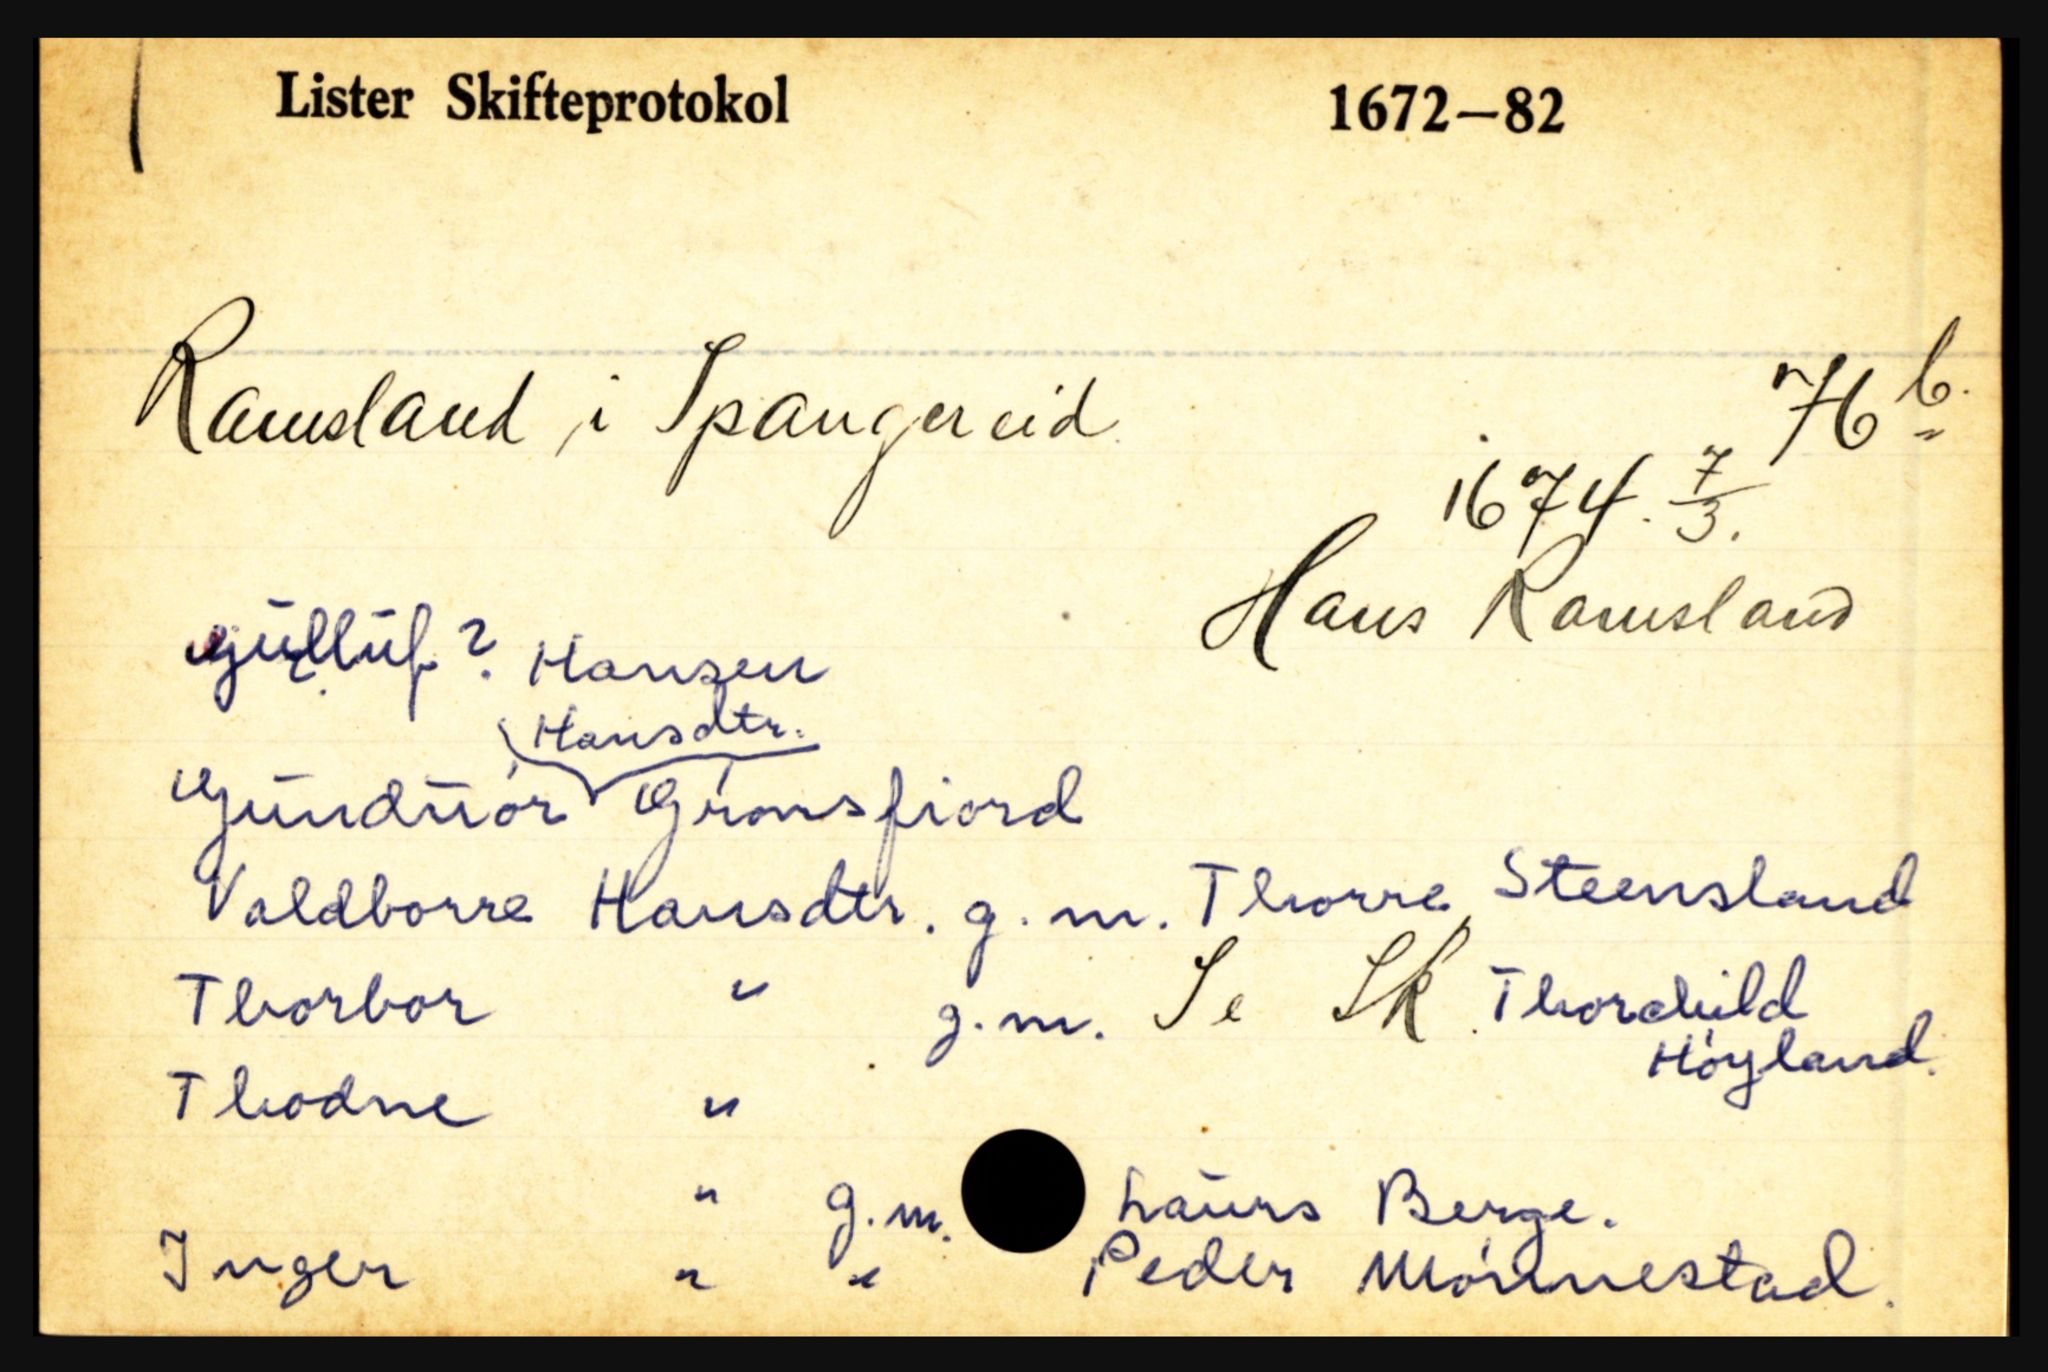 Lister Skifteprotokol 1672—82
Ramsland i Spangereid 76 b.
1674. 7/3.
Hans Ramsland
Gulluf? Hansen
Hansdtr.
Gunduor Gronsfiord
Valdborre Hansdtr. g. m. Thorre Steensland
Thorbor " g.m. Se Sk. Thorchild
Høyland.
Thodne "
" g.m. Laurs Berge.
Inger " " Peder Mønnestad.